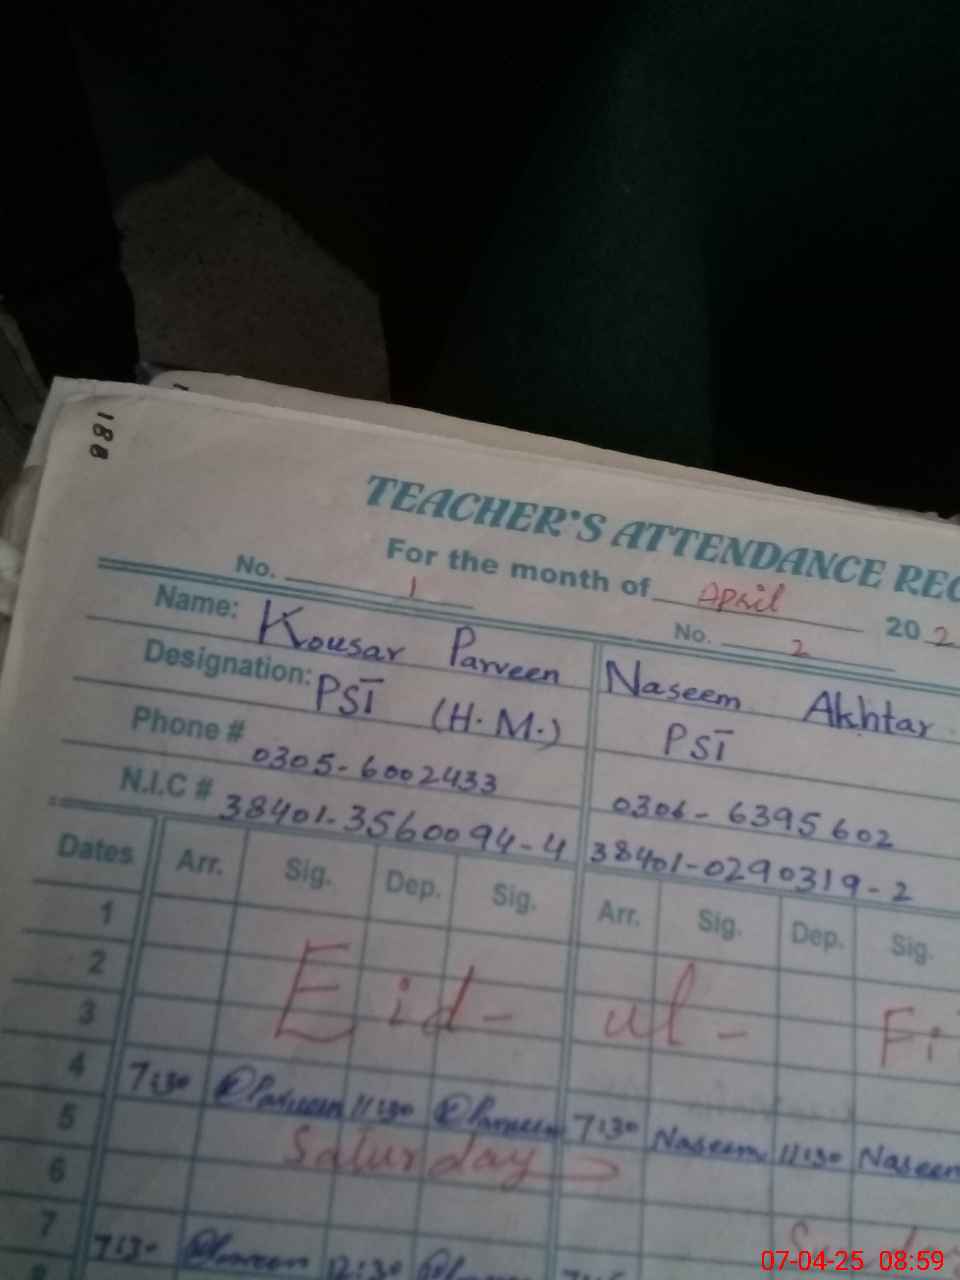 188
TEACHER'S ATTENDANCE REC
For the month of April 202
No. 1 No. 2
Name: Kousar Parveen Naseem Akhtar
Designation: PST (H.M.) PST
Phone # 0305-6002433 0306-6395602
N.I.C # 38401-3560094-4 38401-0290319-2
Dates Arr. Sig. Dep. Sig. Arr. Sig. Dep. Sig.
1
2 Eid-ul-Fi
3
4 7:30 Parveen 11:30 Parveen 7:30 Naseem 11:30 Naseem
5 Saturday
6
7 7:30 Parveen 12:30
07-04-25 08:59